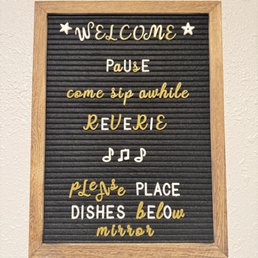 ★WELCOME★
PaUSE
come sip awhile
REVERIE
♪♫♪
PLeAse PLACE
DISHES beLOw
mirror